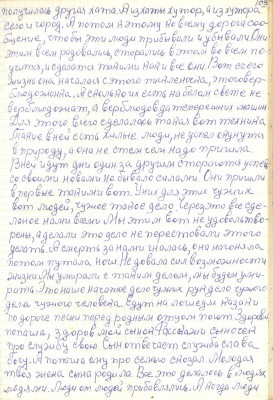 103
получилась другая хата. А из хаты хутор, а из хутора
село и город. А потом к этому ко всему дорога сооб-
щение, чтобы эти люди прибывали и убывали. Они
этим всем радовались, старались в этом во всем по-
учится, и сделать такими как и все они. Вот с его
жизнь она началась с этого от человека, этого вер-
блюдожника. А сколько их есть на белом свете не
верблюдочкат, а верблюдов да теперешних машин
Для этого всего сделалась такая вот техника
Такие в ней есть милые люди, не успел окунуть
в природу, а она не с тем чем надо пришла.
В ней идут дни один за другим стараются успеть
со своими новыми небывалосилами. Они пришли
впервые такими вот. У них для этих чужих
вот людей, чужое такое дело. Через это все сде-
ланое нами всеми Мы этим вот не удовлетво-
рены, а делали это дело не перестовали этого
делать. А смерть за нами гналась, она нагоняла
потом путала ноги. Не довала сил возможности
жизни. Мы умирали с таким делом, мы будем уми-
рать. Это наше начатое дело чужих рук дело чужого
дела чужого человека. Едут на лошедях казаки
по дороге песни перед родным отцом поют. Здорово
папаша, здоров мой сынок. Расскажи сыночек
про службу свою. Сын отвечает служба слава
богу. А папаша ему про семью сказал. Молодая
твоя жена сына родила. Все это делалось в людях
людями. Люди от людей прибавлялись. А когда люди